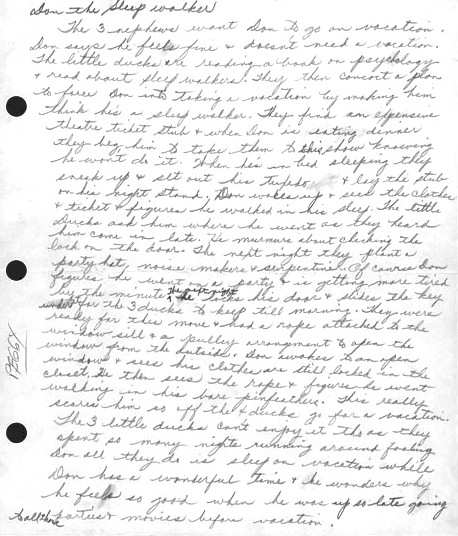 Don the Sleep walker
The 3 nephews want Don to go on vacation.
Don says he feels fine & doesnt need a vacation.
The little ducks are reading a book on psychology
& read about sleep walkers. They then concoct a plan
to force Don into taking a vacation by making him
think he's a sleep walker. They find an expensive
theatre ticket stub & when Don is eating dinner
they beg him to take them to this show knowing
he wont do it. When he's in bed sleeping they
sneak up & set out his Tuxedo & lay the stub
on his night stand. Don wakes up & sees the clothes
& ticket & figures he walked in his sleep. The little
ducks ask him where he went as they heard
him come in late. He murmurs about checking the
lock on the door. The next night they plant a
party hat, noise makers & serpentine. Of course Don
figures he went to a party & is getting more tired
by the minute. The next night he locks his door & slides the key
under for the 3 ducks to keep till morning. They were
ready for this move & had a rope attached to the
window sill & a pulley arrangment to open the
window from the outside. Don awakes to an open
window & sees his clothes are still locked in the
closet. He then sees the rope & figures he went
walking in his bare pinfeathers. This really
scares him so off the 4 ducks go for a vacation.
The 3 little ducks cant enjoy it tho as they
spent so many nights running around fooling
Don all they do is sleep on vacation while
Don has a wonderful time & he wonders why
he feels so good when he was up so late going
to all the parties & movies before vacation.